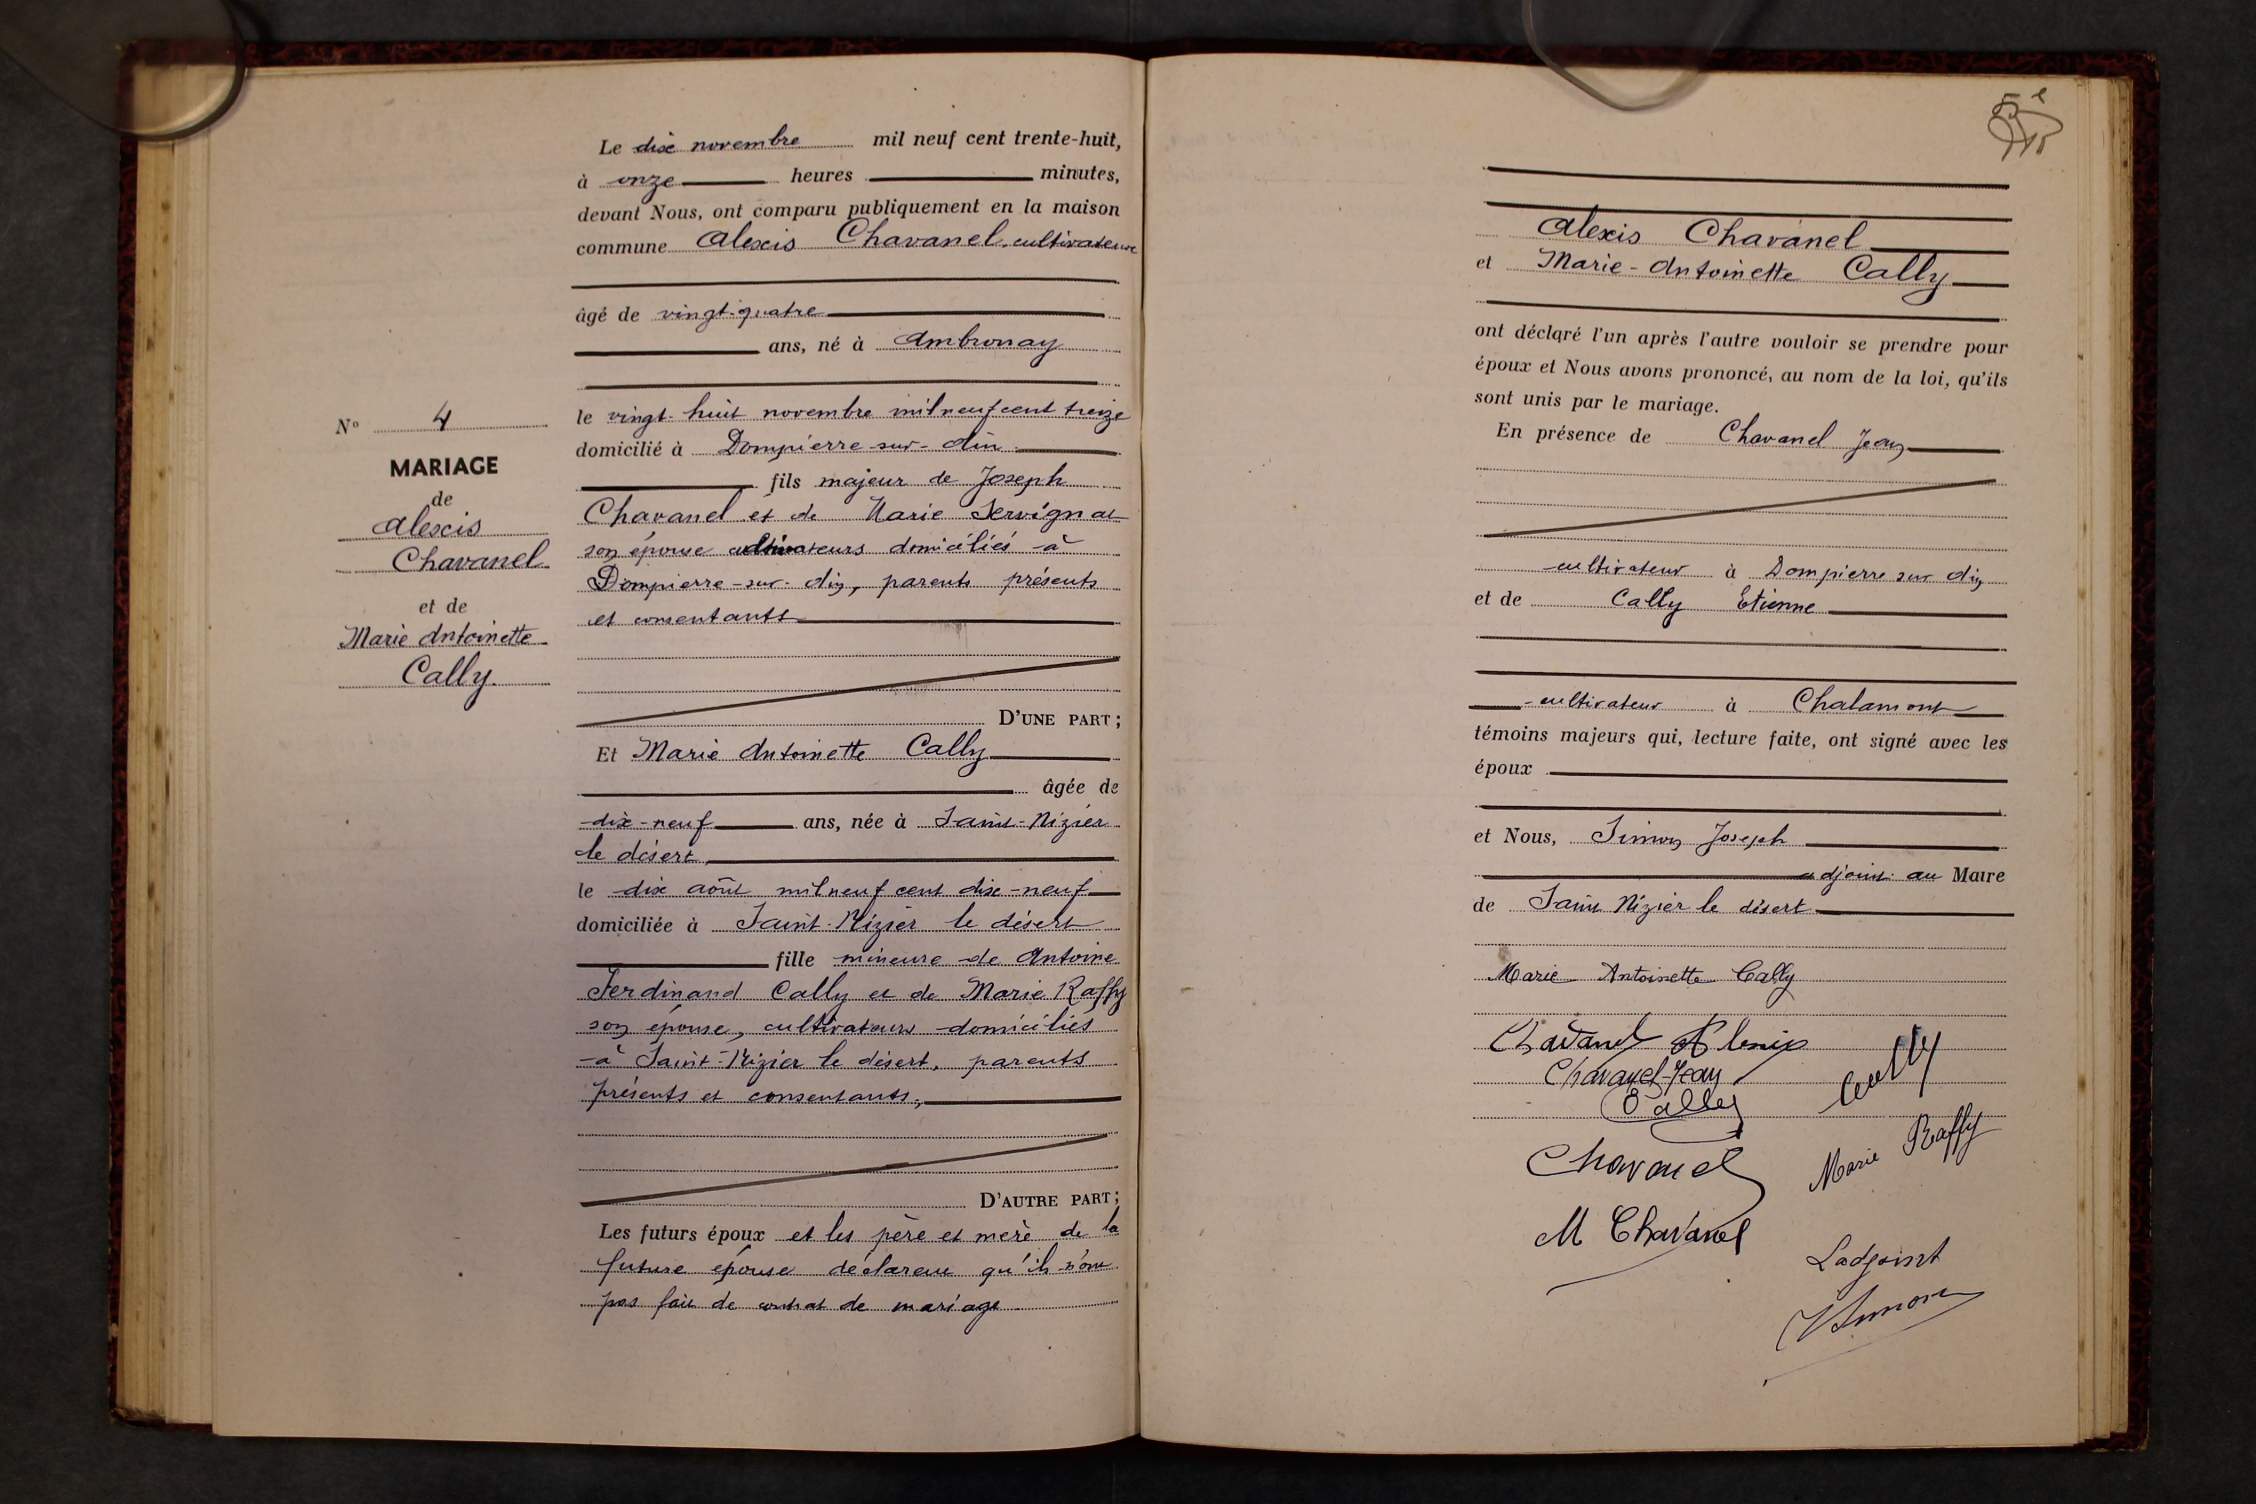 N° 4
MARIAGE
de
Alexis
Chavanel
et de
Marie Antoinette
Cally.
Le dix novembre mil neuf cent trente-huit,
à onze heures minutes,
devant Nous, ont comparu publiquement en la maison
commune Alexis Chavanel, cultivateur
âgé de vingt-quatre
ans, né à Ambronay
le vingt-huit novembre mil neuf cent treize
domicilié à Dompierre-sur-Ain
fils majeur de Joseph
Chavanel et de Marie Servignat
son épouse cultivateurs domiciliés à
Dompierre-sur-Ain, parents présents
et consentants
D'UNE PART;
Et Marie Antoinette Cally
âgée de
dix-neuf ans, née à Saint-Nizier
le désert
le dix août mil neuf cent dix-neuf
domiciliée à Saint-Nizier le désert
fille mineure de Antoine
Ferdinand Cally et de Marie Raffy
son épouse, cultivateurs domiciliés
à Saint-Nizier le désert, parents
présents et consentants,
D'AUTRE PART;
Les futurs époux et les père et mère de la
future épouse déclarent qu'ils n'ont
pas fait de contrat de mariage
5e
Alexis Chavanel
et Marie-Antoinette Cally
ont déclaré l'un après l'autre vouloir se prendre pour
époux et Nous avons prononcé, au nom de la loi, qu'ils
sont unis par le mariage.
En présence de Chavanel Jean
cultivateur à Dompierre sur Ain
et de Cally Etienne
cultivateur à Chalamont
témoins majeurs qui, lecture faite, ont signé avec les
époux
et Nous, Simon Joseph
adjoint au Maire
de Saint Nizier le désert
Marie Antoinette Cally
Chavanel Alexis
Chavanel Jean
Cally
Cally
Chavanel
Marie Raffy
M Chavanel
Ladjoint
Simon